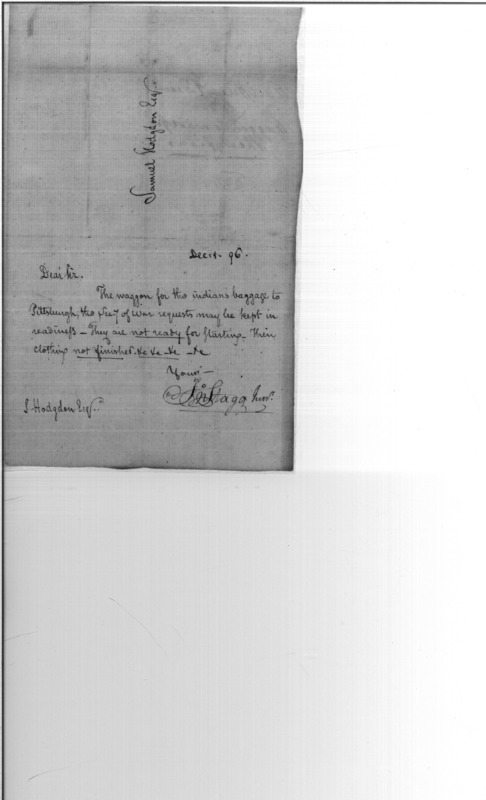 Samuel Hodgdon Esqr.
Dec 14. 96.
Dear Sir.
The waggon for the indians baggage to
Pittsburgh, the Secy of War requests may be kept in
readiness – They are not ready for starting – Their
clothing not finished. &c &c – &c – &c
Yours –
Jno Stagg Junr.
S. Hodgdon Esqr.